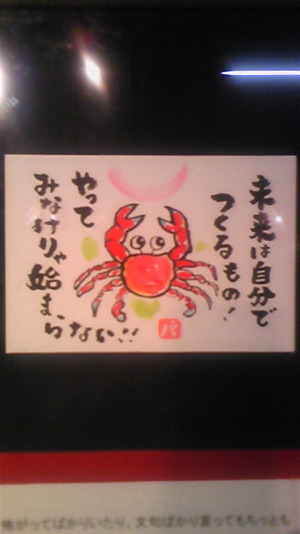 未来は自分で
つくるもの!
やって
みなけりゃ始まらない!!
パ
怖がってばかりいたり、文句ばかり言ってもちっとも